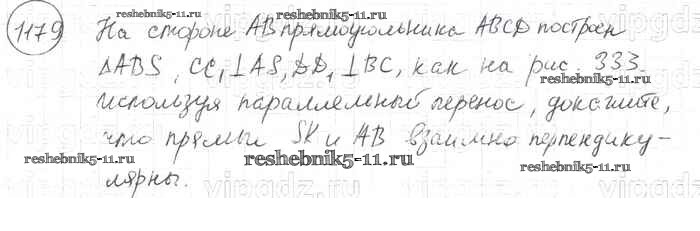 1179 На стороне AB прямоугольника ABCD построен
ΔABS, CC₁⊥AS, DD₁⊥BC, как на рис. 333.
используя параллельный перенос, докажите,
что прямые SK и AB взаимно перпендику-
лярны.
reshebnik5-11.ru
reshebnik5-11.ru
reshebnik5-11.ru
reshebnik5-11.ru
reshebnik5-11.ru
vipgdz.ru
vipgdz.ru